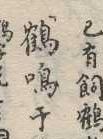 已有飼鶴
「鶴鳴于